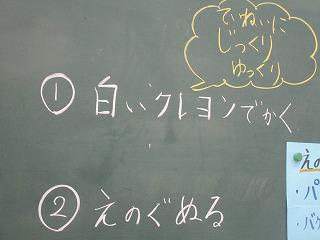 ていねいに
じっくり
ゆっくり
① 白いクレヨンでかく
② えのぐぬる
えの
・パ
・バケ